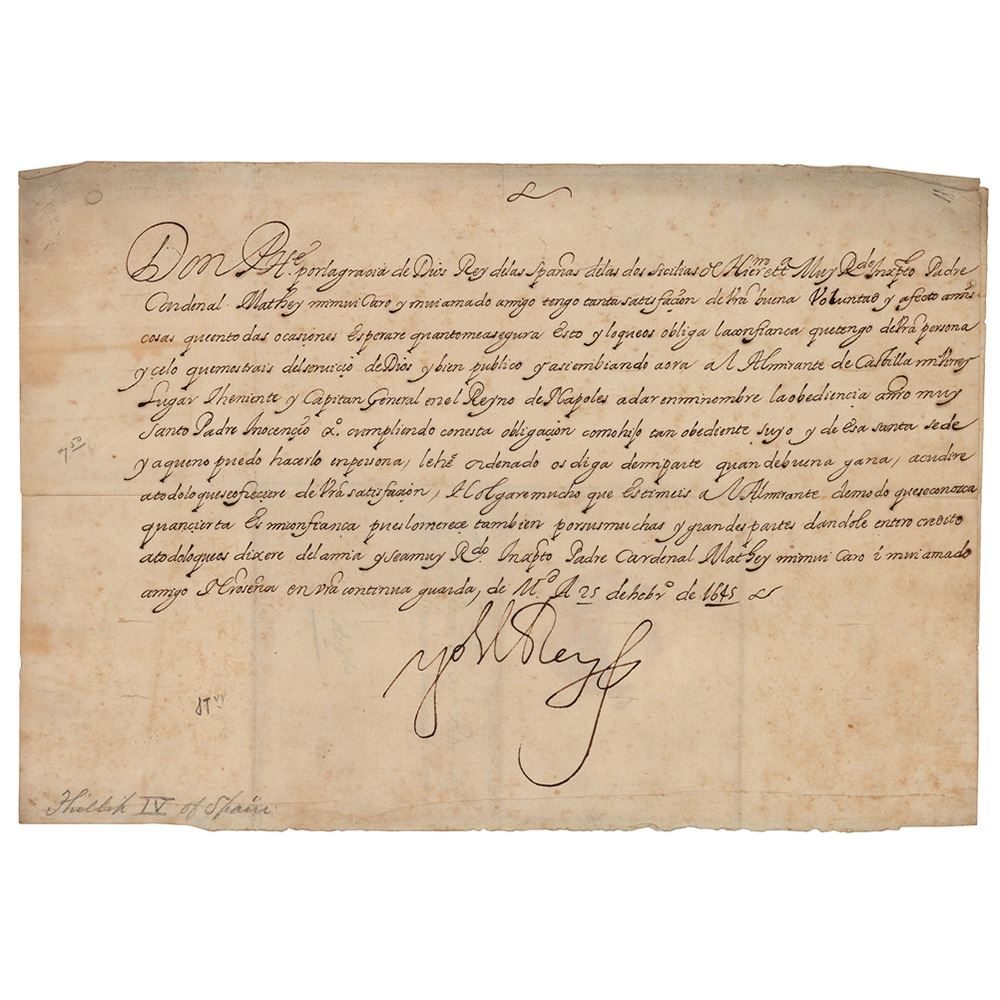 Don Phe. por la gracia de Dios Rey de las Spañas de las dos Sicilias de Hiermo etta Muy Rdo. In xpto Padre
Cardenal Mathey mi mui Caro y mui amado amigo tengo tanta satisfaçion de vra buena Voluntad y afecto a mis
cosas que en todas ocasiones Esperare quanto me asegura Esto y lo que os obliga la confiança que tengo de vra persona
y çelo que mostrais del serviçio de Dios y bien publico y asi embiando aora a l Almirante de Castilla mi Virrey
Lugar Theniente y Capitan General en el Reyno de Napoles a dar en mi nombre la obediencia a nro muy
Santo Padre Inocençio Xo. cumpliendo con esta obligaçion como hijo tan obediente suyo y de Esa santa sede
ya que no puedo hacerlo en persona, le he ordenado os diga de mi parte quan de buena gana, acudire
a todo lo que se ofreçiere de vra satisfaçion, Holgare mucho que Estimeis a l Almirante de modo que se conozca
quan çierta Es mi confiança pues lo merece tambien por sus muchas y grandes partes dandole entro credito
a todo lo que os dixere de la mia y sea muy Rdo. In xpto Padre Cardenal Mathey mi mui Caro i mui amado
amigo Nro señor en vra continua guarda, de Md. A 25 de hebro de 1645
yo el Rey
7.50
Phillip IV of Spain